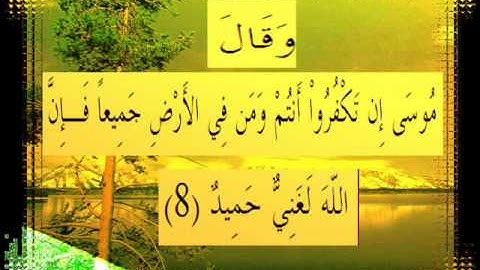 وَقَالَ
مُوسَى إِن تَكْفُرُواْ أَنتُمْ وَمَن فِي الأَرْضِ جَمِيعاً فَـــإِنَّ
اللّهَ لَغَنِيٌّ حَمِيدٌ (8)